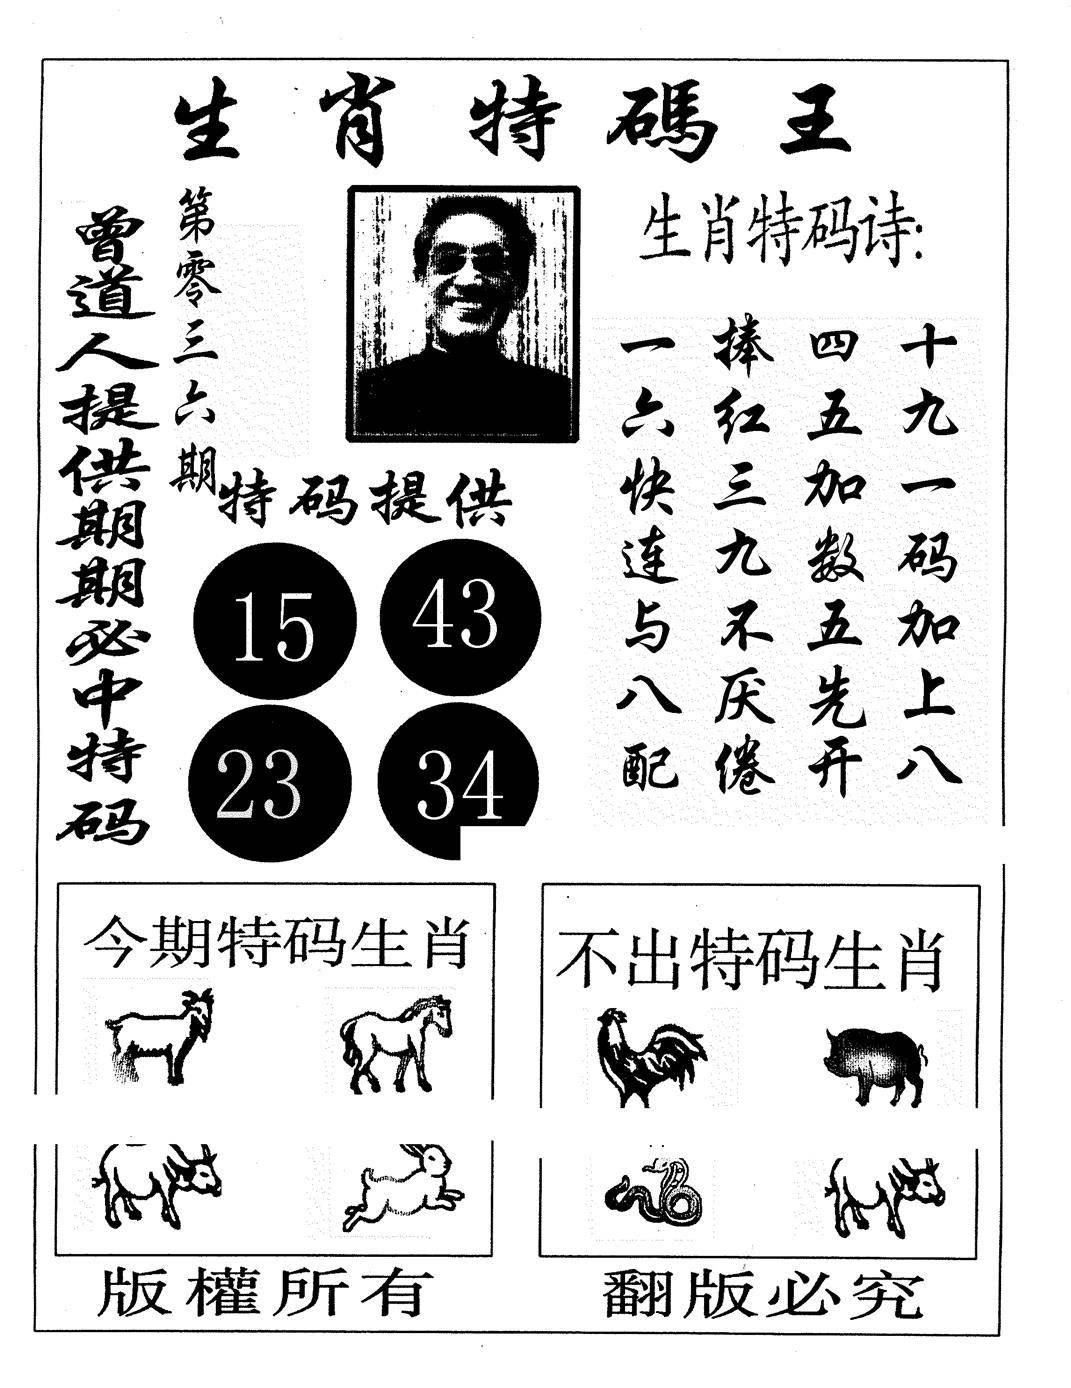 生肖特碼王
曾道人提供期期必中特码
第零三六期
生肖特码诗:
十九一码加上八
四五加数五先开
捧红三九不厌倦
一六快连与八配
特码提供
15 43
23 34
今期特码生肖
不出特码生肖
版權所有
翻版必究